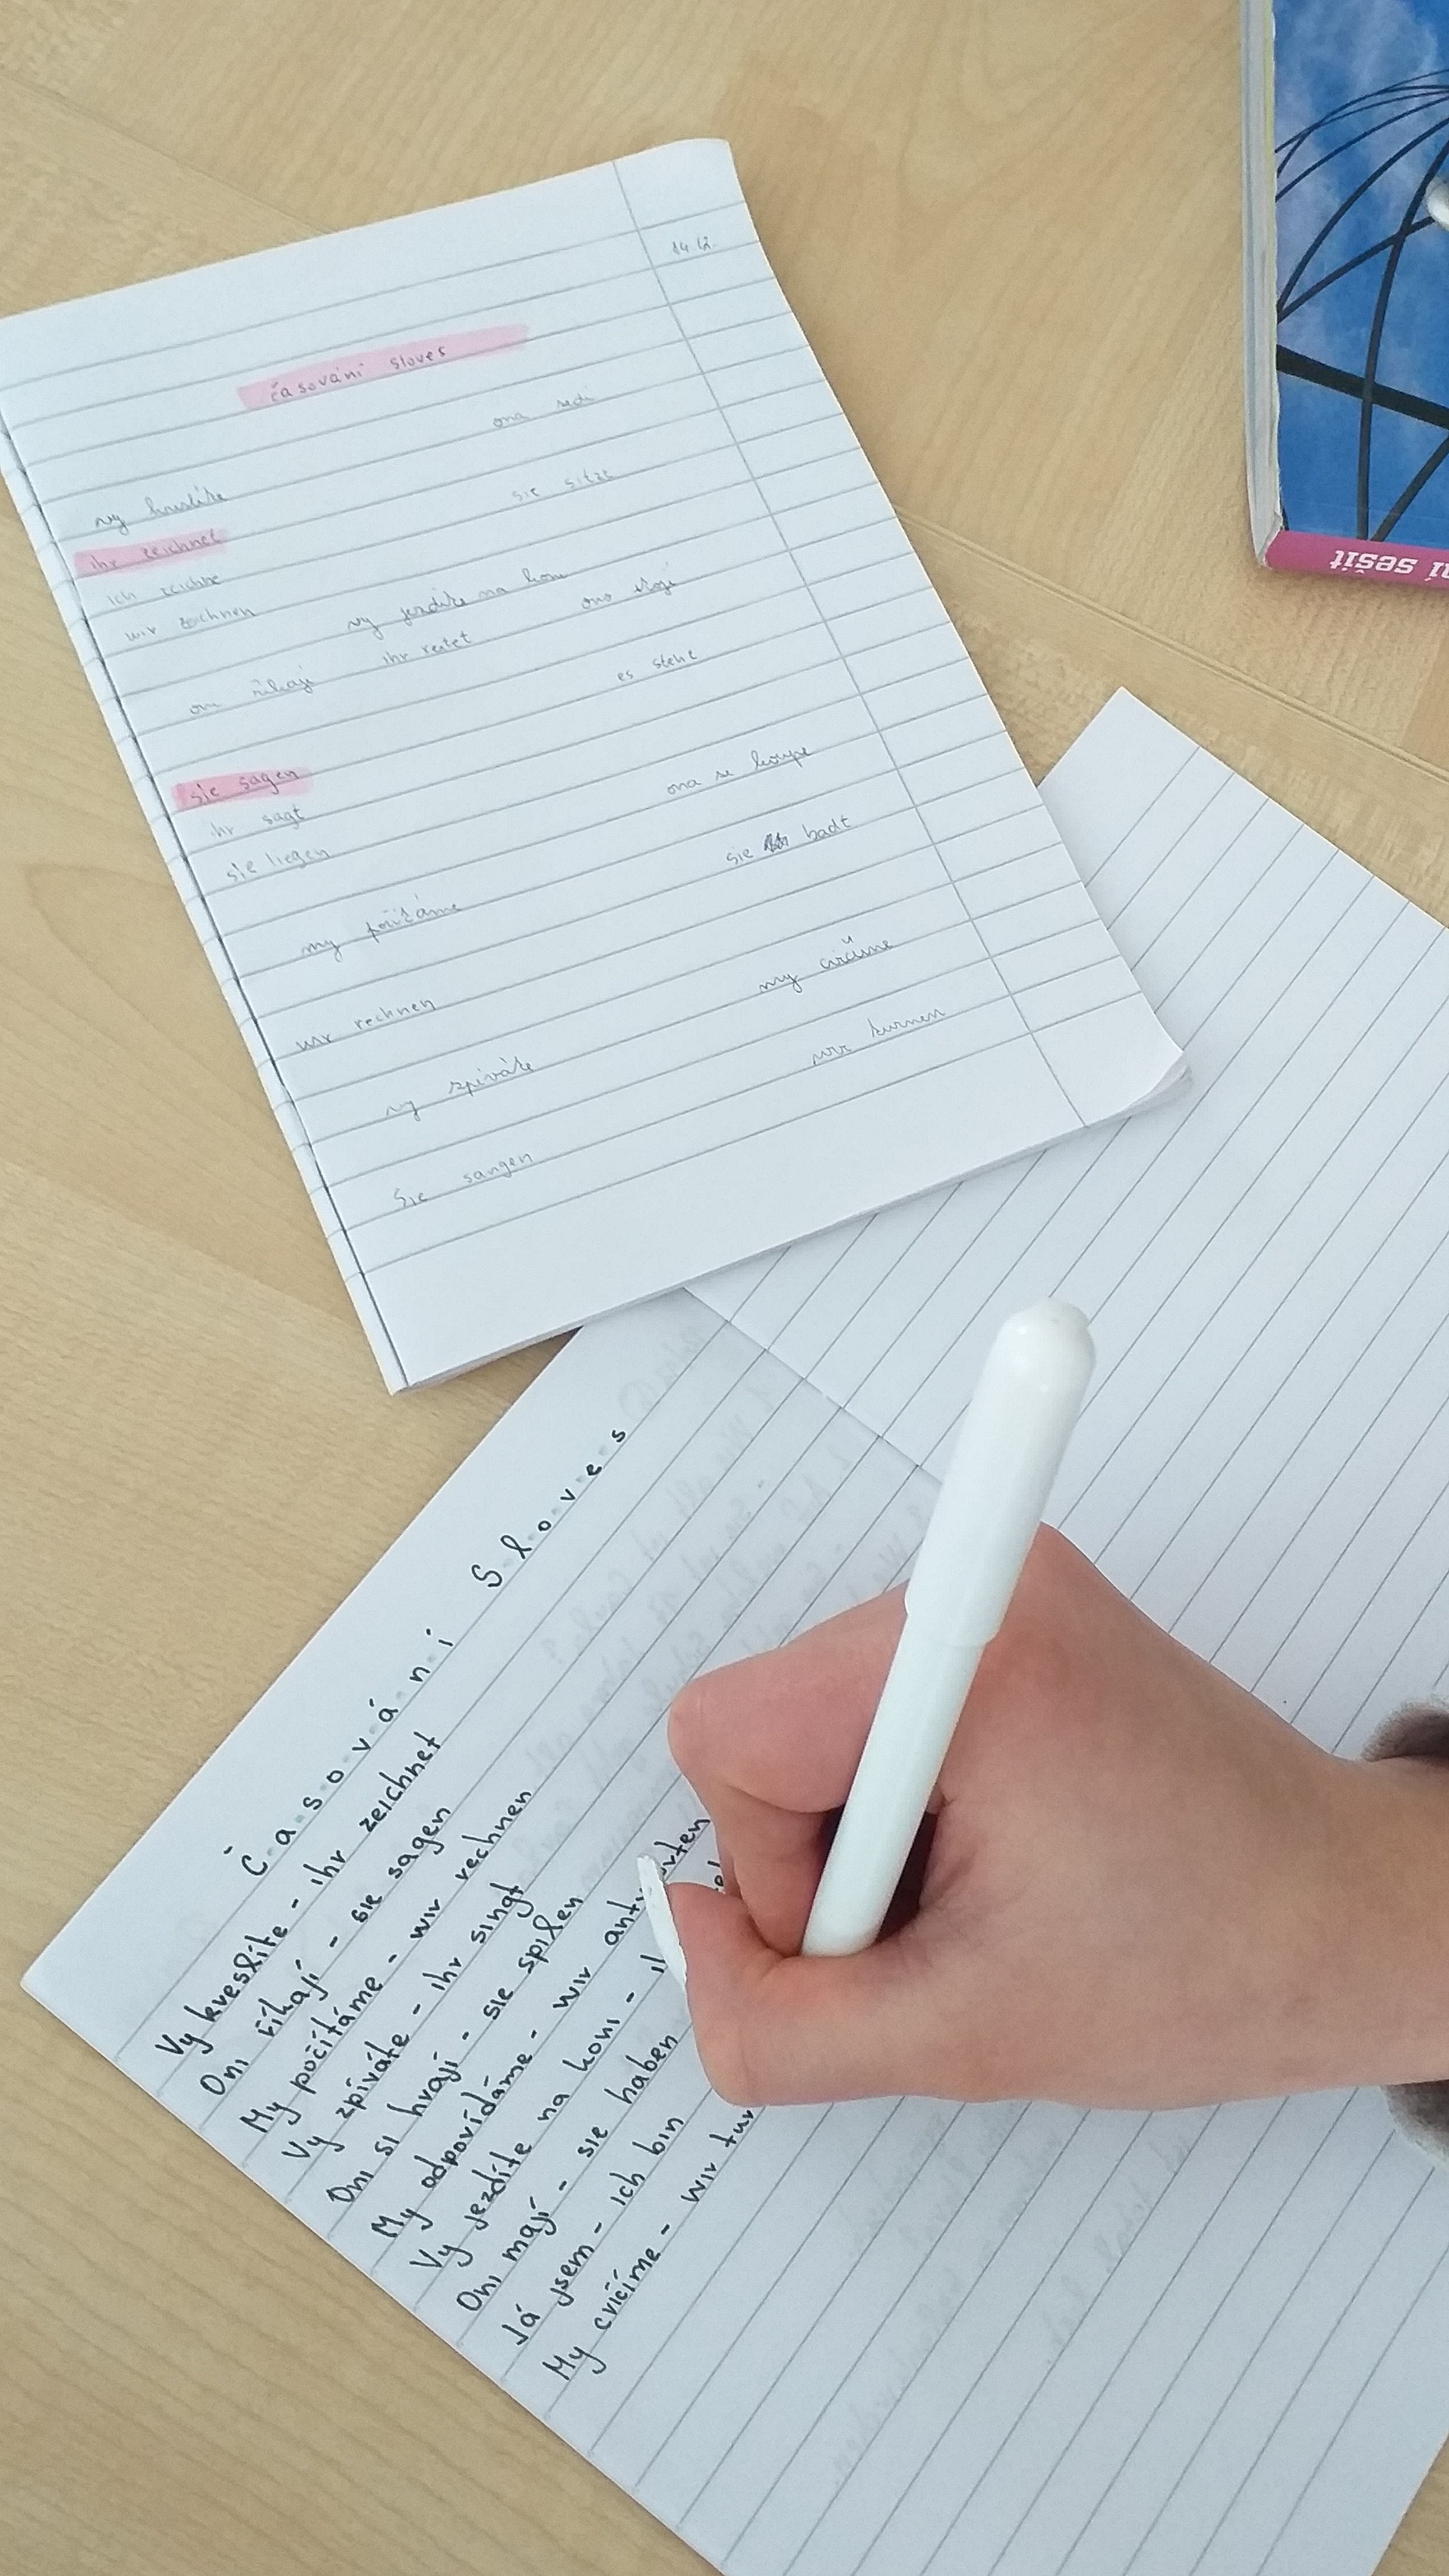 14.12.
časování sloves
ona sedí
vy kreslíte
sie sitze
ihr zeichnet
ich zeichne
wir zeichnen
vy jezdíte na koni
ono stojí
ihr reitet
oni říkají
es stehe
sie sagen
ihr sagt
ona se koupe
sie liegen
sie badt
my počítáme
my cvičíme
wir rechnen
wir turnen
vy zpíváte
sie sangen
Časování Sloves
Vy kreslíte - ihr zeichnet
Oni říkají - sie sagen
My počítáme - wir rechnen
Vy zpíváte - ihr singt
Oni si hrají - sie spilen
My odpovídáme - wir
Vy jezdíte na koni -
Oni mají - sie haben
Já jsem - ich bin
My cvičíme - wir tur
ní sešit